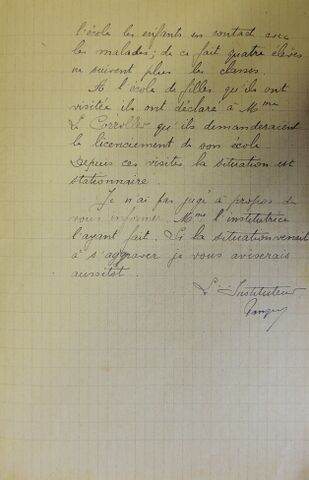 l'école les enfants en contact avec
les malades; de ce fait quatre élèves
ne suivent plus les classes.
A l'école de filles qu'ils ont
visitée ils ont déclaré à Mme
Le Corroller qu'ils demanderaient
le licenciement de son école.
Depuis ces visites la situation est
stationnaire.
Je n'ai pas jugé à propos de
vous informer Mme l'institutrice
l'ayant fait. Si la situation venait
à s'aggraver je vous aviserais
aussitôt.
L'Instituteur